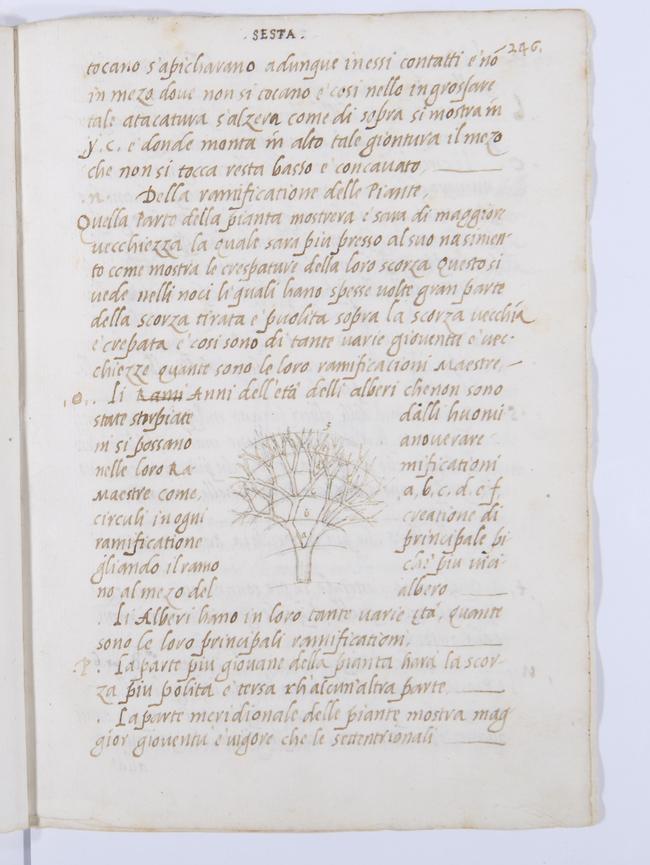 . SESTA .
246.
tocano s'apicharano adunque inessi contatti è nō
in mezo doue non si tocano e cosi nello ingrossare
tale atacatura s'alzera come di sopra si mostra in
y. c. e donde monta in alto tale giontura il mezo
che non si tocca resta basso e concauato,
Della ramificatione delle Piante,
Quella Parte della pianta mostrera e sara di maggiore
uecchiezza la quale sara piu presso al suo nasimen-
to come mostra le crespature della loro scorza Questo si
uede nelli noci li quali hano spesse uolte gran parte
della scorza tirata e puolita sopra la scorza uecchia
e crepata e cosi sono di tante uarie giouentu e uec-
chiezze quante sono le loro ramificacioni Maestre,
.o. . Li Rami Anni dell'età delli alberi che non sono
state storpiate dalli huomi
ni si possano anouerare
nelle loro Ra- mificationi
Maestre come, a, b, c, d, e, f,
circuli in ogni creatione di
ramificatione principale pi
gliando il ramo che piu uici-
no al mezo del albero
. Li Alberi hano in loro tante uarie Età, quante
sono le loro principali ramificationi,
P. . La parte piu giouane della pianta hara la scor-
za piu polita e tersa ch'alcun'altra parte
. La parte meridionale delle piante mostra mag
gior giouentu e uigore che le settentrionali